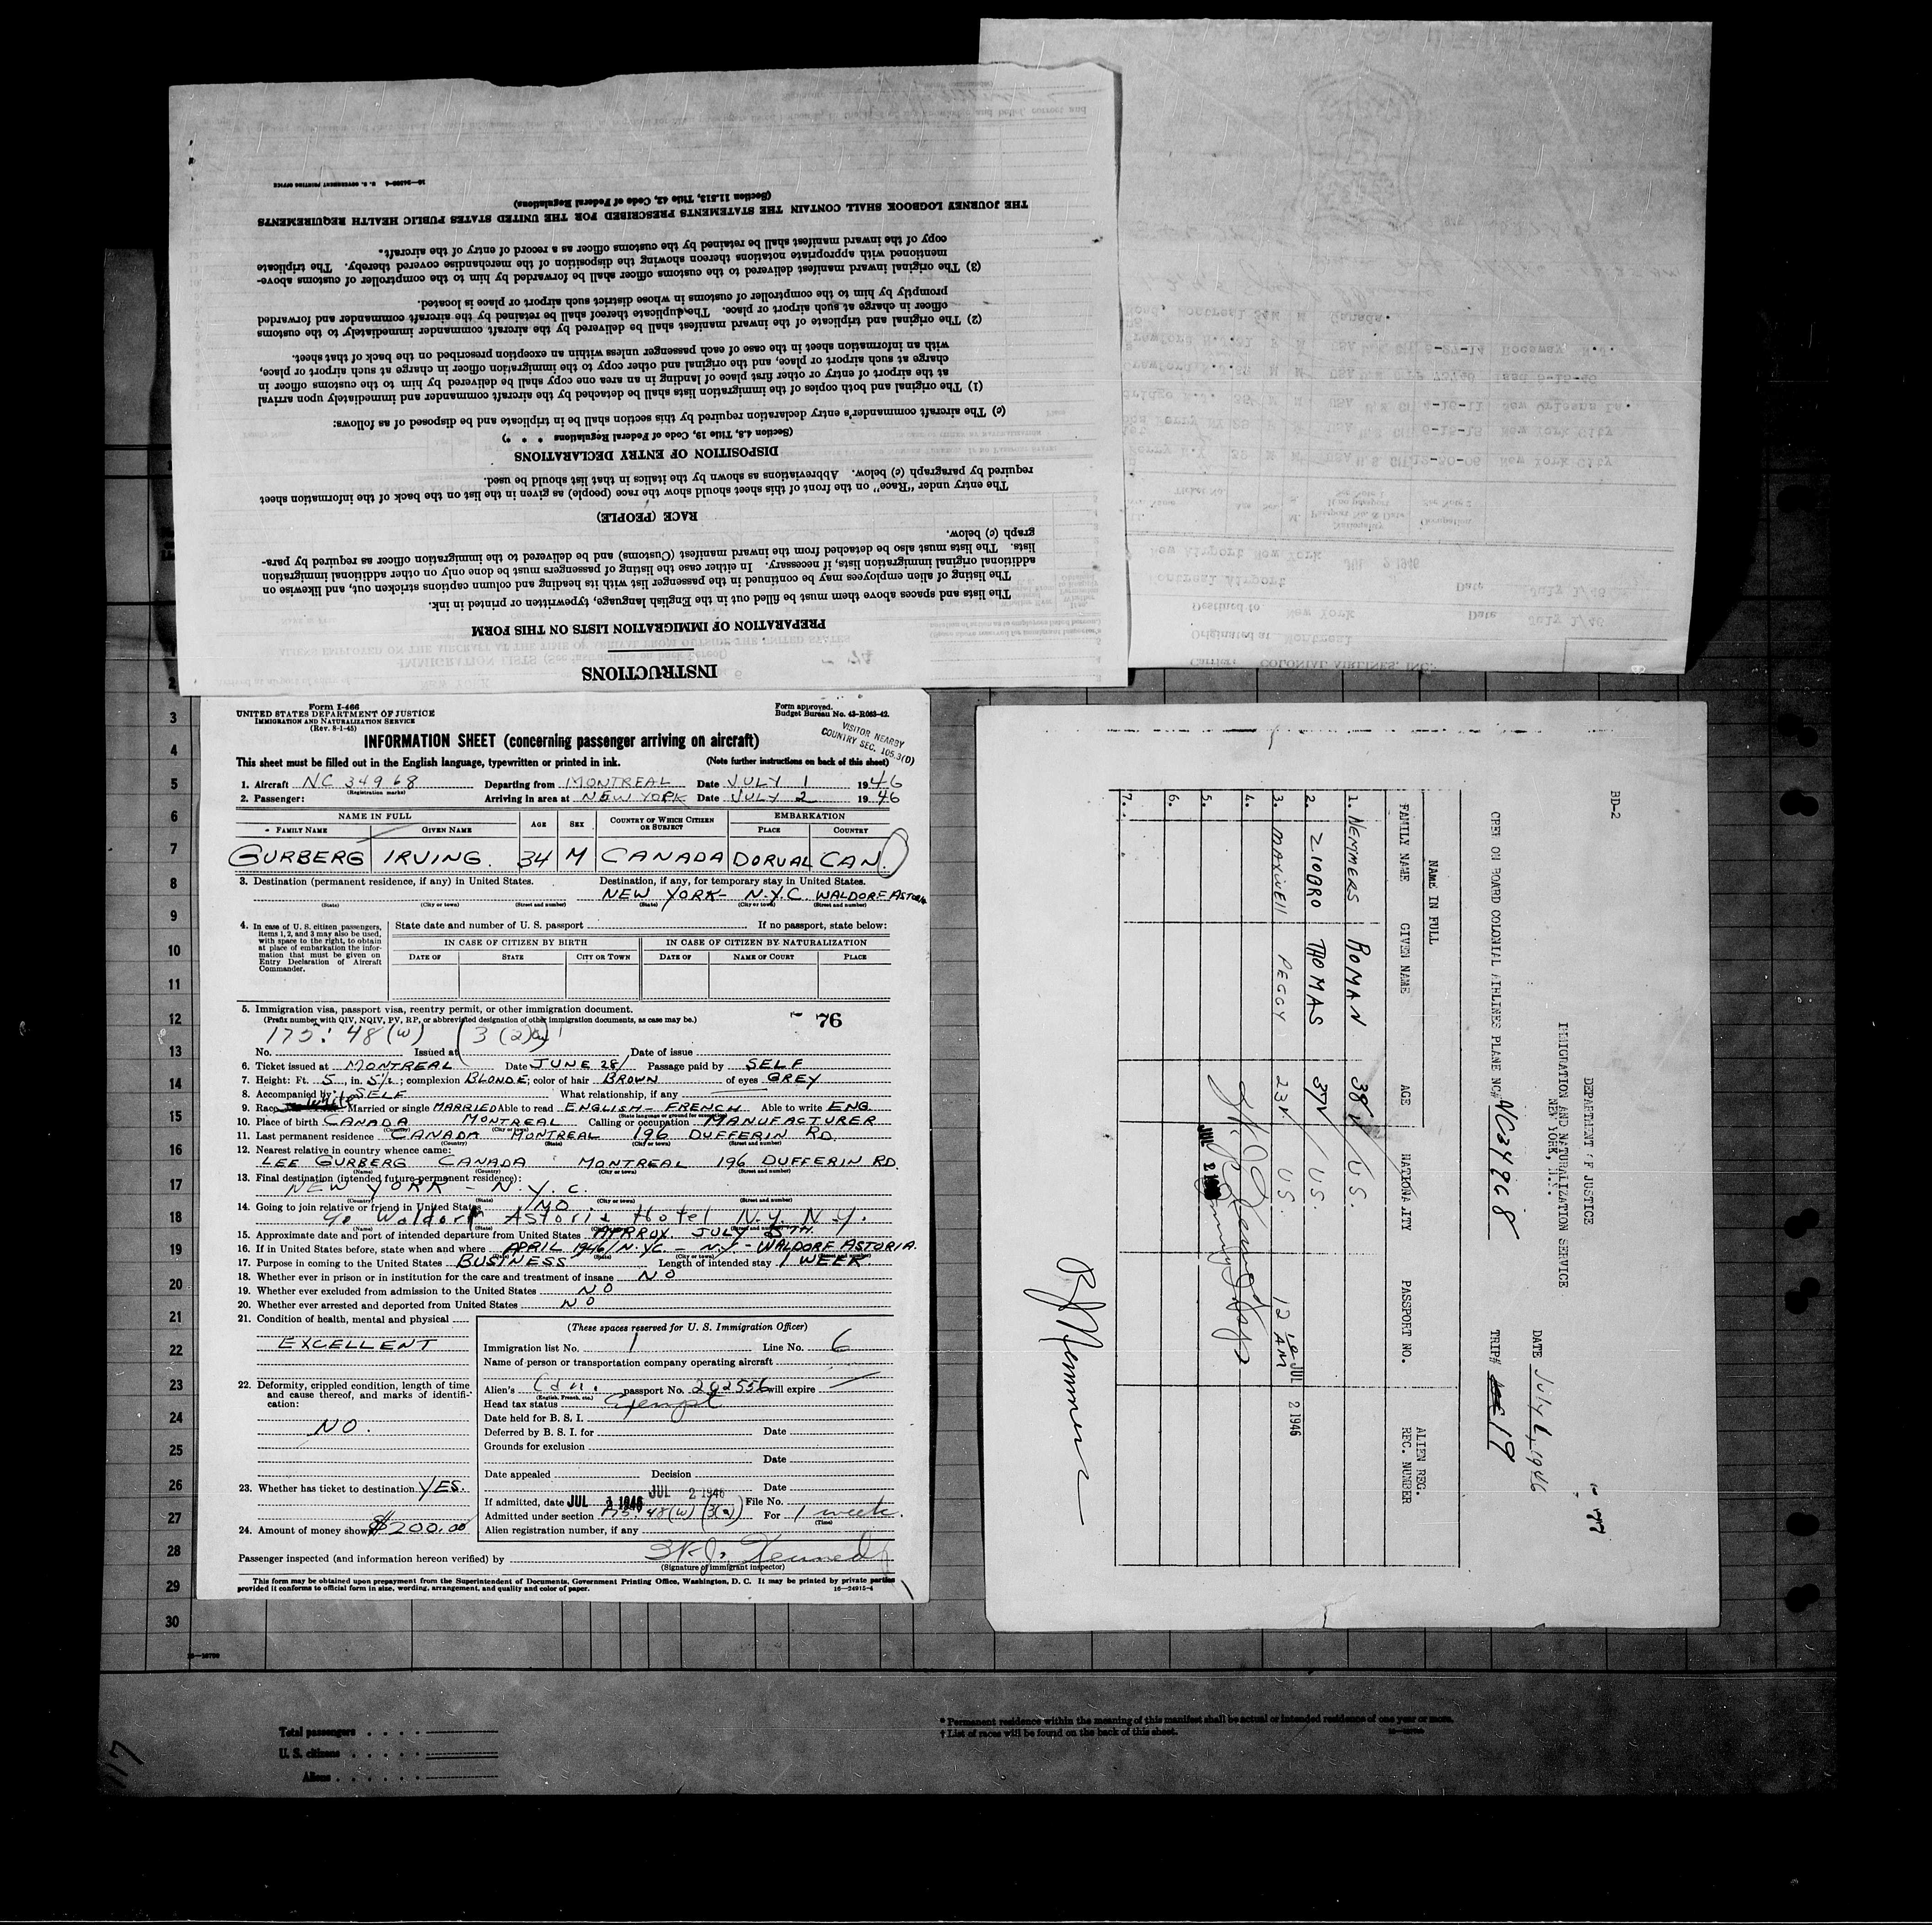 INSTRUCTIONS
PREPARATION OF IMMIGRATION LISTS ON THIS FORM
The lists and spaces above them must be filled out in the English language, typewritten or printed in ink.
The listing of alien employees may be continued in the passenger list with its heading and column captions stricken out, and likewise on
additional original immigration lists, if necessary. In either case the listing of passengers must be done only on other additional immigration
lists. The lists must also be detached from the inward manifest (Customs) and be delivered to the immigration officer as required by para-
graph (c) below.
RACE (PEOPLE)
The entry under "Race" on the front of this sheet should show the race (people) as given in the list on the back of the information sheet
required by paragraph (c) below. Abbreviations as shown by the italics in that list should be used.
DISPOSITION OF ENTRY DECLARATIONS
(Section 4.8, Title 19, Code of Federal Regulations * * *)
(c) The aircraft commander's entry declaration required by this section shall be in triplicate and be disposed of as follows:
(1) The original and both copies of the immigration lists shall be detached by the aircraft commander and immediately upon arrival
at the airport of entry or other first place of landing in an area one copy shall be delivered by him to the customs officer in
charge at such airport or place, and the original and other copy to the immigration officer in charge at such airport or place,
with an information sheet in the case of each passenger unless within an exception prescribed on the back of that sheet.
(2) The original and triplicate of the inward manifest shall be delivered by the aircraft commander immediately to the customs
officer in charge at such airport or place. The duplicate thereof shall be retained by the aircraft commander and forwarded
promptly by him to the comptroller of customs in whose district such airport or place is located.
(3) The original inward manifest delivered to the customs officer shall be forwarded by him to the comptroller of customs above-
mentioned with appropriate notations thereon showing the disposition of the merchandise covered thereby. The triplicate
copy of the inward manifest shall be retained by the customs officer as a record of entry of the aircraft.
THE JOURNEY LOGBOOK SHALL CONTAIN THE STATEMENTS PRESCRIBED FOR THE UNITED STATES PUBLIC HEALTH REQUIREMENTS
(Section 11.513, Title 42, Code of Federal Regulations)
U. S. GOVERNMENT PRINTING OFFICE
Carrier: COLONIAL AIRLINES, INC.
Originated at Montreal Date July 1/46
Destined to New York Date July 1/46
Form I-466
UNITED STATES DEPARTMENT OF JUSTICE
IMMIGRATION AND NATURALIZATION SERVICE
(Rev. 8-1-45)
Form approved.
Budget Bureau No. 43-R063-42.
VISITOR NEARBY
COUNTRY SEC. 105.3(D)
INFORMATION SHEET (concerning passenger arriving on aircraft)
This sheet must be filled out in the English language, typewritten or printed in ink. (Note further instructions on back of this sheet)
1. Aircraft NC 34968 Departing from MONTREAL Date JULY 1 1946
(Registration marks)
2. Passenger: Arriving in area at NEW YORK Date JULY 2 1946
NAME IN FULL AGE SEX COUNTRY OF WHICH CITIZEN OR SUBJECT EMBARKATION
FAMILY NAME GIVEN NAME PLACE COUNTRY
GURBERG IRVING. 34 M CANADA DORVAL CAN.
3. Destination (permanent residence, if any) in United States. Destination, if any, for temporary stay in United States.
NEW YORK - N.Y.C. WALDORF ASTORIA
(State) (City or town) (Street and number) (State) (City or town) (Street and number)
4. In case of U. S. citizen passengers, items 1, 2, and 3 may also be used, with space to the right, to obtain at place of embarkation the information that must be given on Entry Declaration of Aircraft Commander.
State date and number of U. S. passport If no passport, state below:
IN CASE OF CITIZEN BY BIRTH IN CASE OF CITIZEN BY NATURALIZATION
DATE OF STATE CITY OR TOWN DATE OF NAME OF COURT PLACE
5. Immigration visa, passport visa, reentry permit, or other immigration document.
(Prefix number with QIV, NQIV, PV, RP, or abbreviated designation of other immigration documents, as case may be.)
76
175:48(w)
No. Issued at Date of issue
6. Ticket issued at MONTREAL Date JUNE 28/ Passage paid by SELF
7. Height: Ft. 5, in. 5½; complexion BLONDE; color of hair BROWN of eyes GREY
8. Accompanied by SELF What relationship, if any
9. Race White Married or single MARRIED Able to read ENGLISH - FRENCH Able to write ENG
10. Place of birth CANADA MONTREAL Calling or occupation MANUFACTURER
11. Last permanent residence CANADA MONTREAL 196 DUFFERIN RD
12. Nearest relative in country whence came:
LEE GURBERG CANADA MONTREAL 196 DUFFERIN RD.
13. Final destination (intended future permanent residence):
NEW YORK - N.Y.C.
14. Going to join relative or friend in United States NO
c/o Waldorf Astoria Hotel N.Y. N.Y.
15. Approximate date and port of intended departure from United States APPROX JULY 5TH
16. If in United States before, state when and where APRIL 1946/N.YC - N.Y - WALDORF ASTORIA.
17. Purpose in coming to the United States BUSINESS Length of intended stay 1 WEEK.
18. Whether ever in prison or in institution for the care and treatment of insane NO
19. Whether ever excluded from admission to the United States NO
20. Whether ever arrested and deported from United States NO
21. Condition of health, mental and physical
EXCELLENT
22. Deformity, crippled condition, length of time and cause thereof, and marks of identification:
NO.
23. Whether has ticket to destination YES.
24. Amount of money shown $200.00
(These spaces reserved for U. S. Immigration Officer)
Immigration list No. 1 Line No. 6
Name of person or transportation company operating aircraft
Alien's Cdn. passport No. 202556 will expire
(English, French, etc.)
Head tax status Exempt
Date held for B. S. I.
Deferred by B. S. I. for Date
Grounds for exclusion
Date
Date appealed Decision
Date
If admitted, date JUL 2 1946 File No.
Admitted under section 175:48(w) (3(2)) For 1 week.
(Time)
Alien registration number, if any
Passenger inspected (and information hereon verified) by Kennedy
(Signature of immigrant inspector)
This form may be obtained upon prepayment from the Superintendent of Documents, Government Printing Office, Washington, D. C. It may be printed by private parties
provided it conforms to official form in size, wording, arrangement, and quality and color of paper. 16—24915-4
BD-2
DEPARTMENT OF JUSTICE
IMMIGRATION AND NATURALIZATION SERVICE
NEW YORK, N.Y.
DATE July 1, 1946
CREW ON BOARD COLONIAL AIRLINES PLANE NC# NC34968 TRIP# 19
NAME IN FULL
FAMILY NAME GIVEN NAME AGE NATIONALITY PASSPORT NO. ALIEN REG. REC. NUMBER
1. NEMMERS ROMAN 38 U.S.
2. ZIOBRO THOMAS 37 U.S.
3. MAXWELL PEGGY 23 U.S.
4.
5.
6.
7.
JUL 2 1946
RJ Nemmers
3
4
5
6
7
8
9
10
11
12
13
14
15
16
17
18
19
20
21
22
23
24
25
26
27
28
29
30
Total passengers
U. S. citizens
Aliens
* Permanent residence within the meaning of this manifest shall be actual or intended residence of one year or more.
† List of races will be found on the back of this sheet.
117